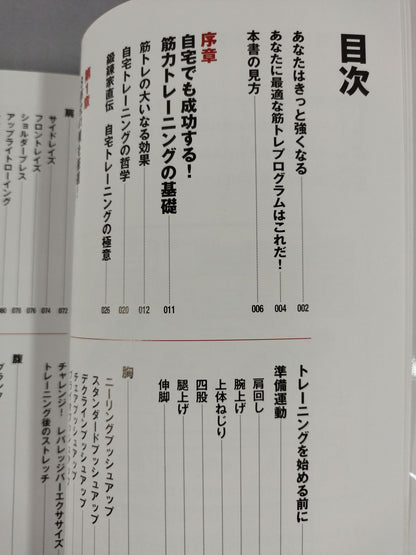 目次
あなたはきっと強くなる 002
あなたに最適な筋トレプログラムはこれだ! 004
本書の見方 006
序章
自宅でも成功する!
筋力トレーニングの基礎 011
筋トレの大いなる効果 012
自宅トレーニングの哲学 020
鍛錬家直伝 自宅トレーニングの極意 026
第1章
トレーニングを始める前に
準備運動
肩回し
腕上げ
上体ねじり
四股
腿上げ
伸脚
胸
ニーリングプッシュアップ
スタンダードプッシュアップ
デクラインプッシュアップ
チェアプッシュアップ
肩
サイドレイズ 072
フロントレイズ 074
ショルダープレス 076
アップライトローイング 078
080
チャレンジ! レバレッジバーエクササイズ
トレーニング後のストレッチ
腹
プランク